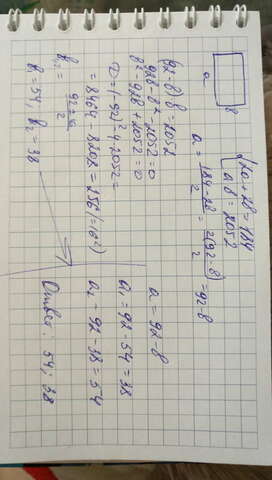 a
в
{2a + 2в = 184
aв = 2052
a = 184 - 2в / 2 = 2(92 - в) / 2 = 92 - в
(92 - в) в = 2052
92в - в² - 2052 = 0
в² - 92в + 2052 = 0
D = (-92)² - 4 · 2052 =
= 8464 - 8208 = 256 (16²)
в₁,₂ = 92 ± 16 / 2
в₁ = 54, в₂ = 38
a = 92 - в
a₁ = 92 - 54 = 38
a₂ = 92 - 38 = 54
Ответ: 54; 38